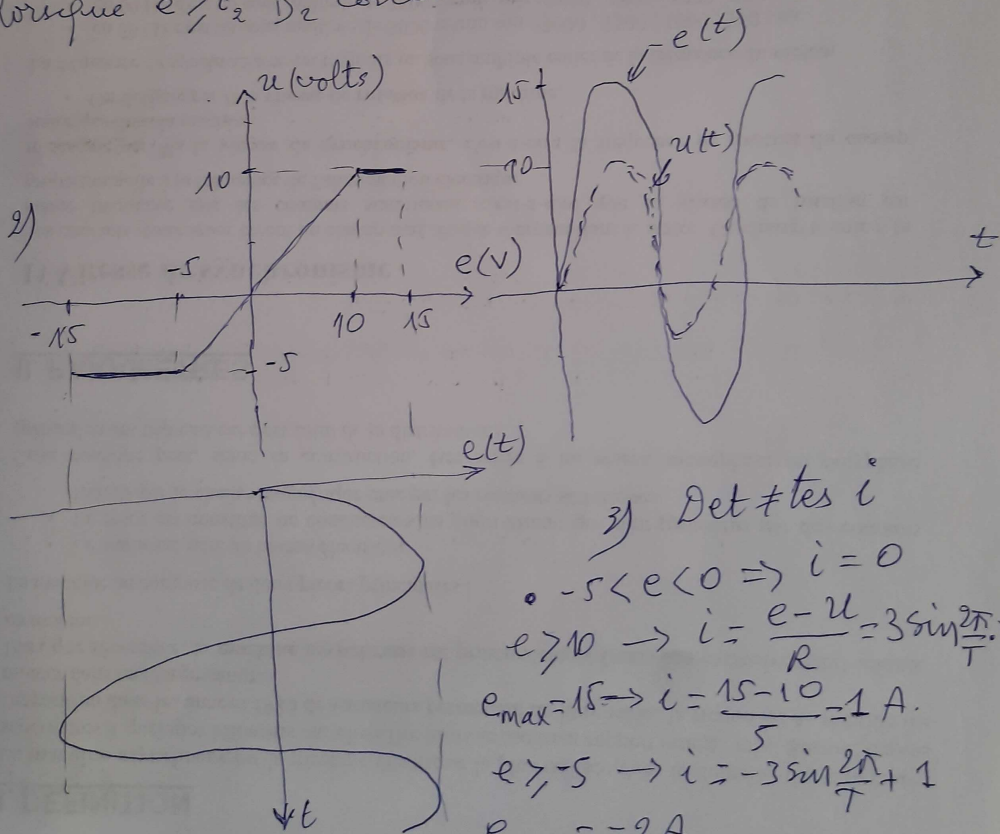 lorsque e ≥ E₂ D₂
u(volts)
10
2)
-5
e(V)
-15
10
15
-5
e(t)
15
u(t)
10
t
e(t)
t
3) Det ≠tes i
• -5 < e < 0 => i = 0
e ≥ 10 → i = (e - u)/R = 3 sin 2π/T .
e_max = 15 → i = (15-10)/5 = 1 A.
e ≥ -5 → i = -3 sin 2π/T + 1
= -2 A